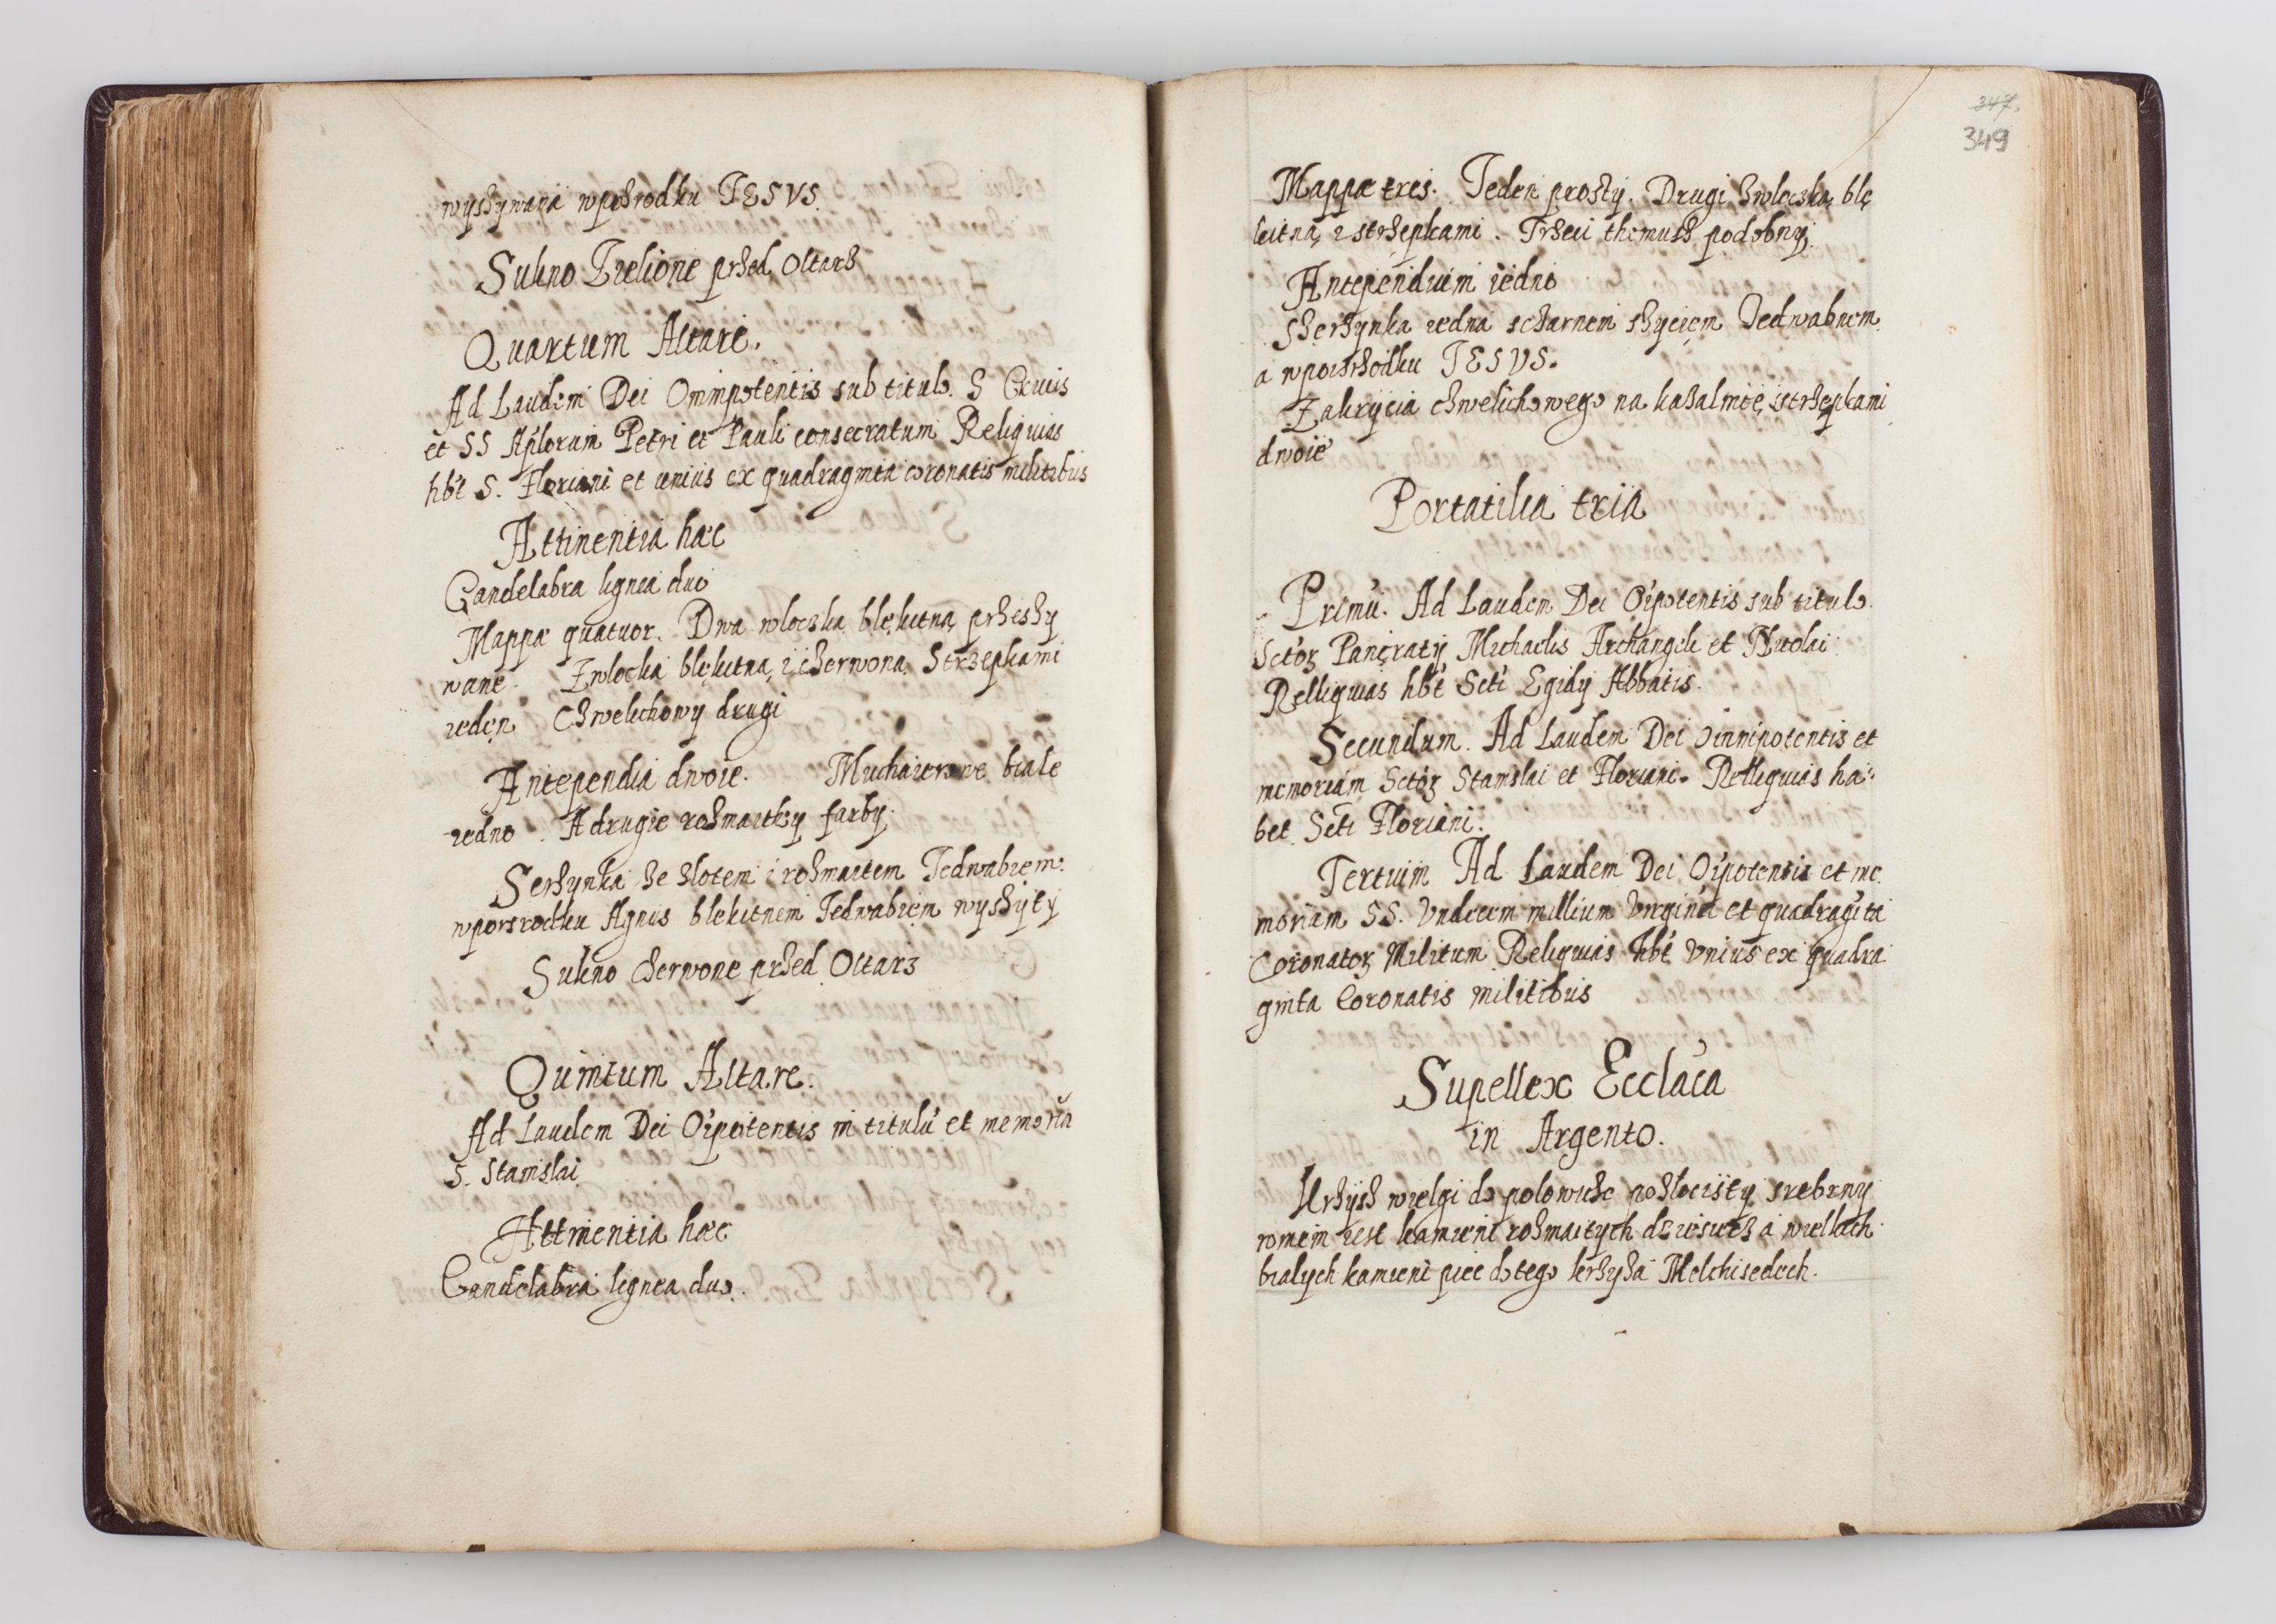 wyszywana wposrodku IESVS.
Sukno Zielione przed Oltarz
Quartum Altare.
Ad Laudem Dei Omnipotentis sub titulo S Crucis
et SS Aplorum Petri et Pauli consecratum Reliquias
hbt S. Floriani et unius ex quadraginta coronatis militibus
Attinentia haec
Candelabra lignea duo
Mappæ quatuor. Dwa wloczką blękitną przeszy
wane Zwloczką blękitną, i czerwoną Strzępkami
ieden Chwelichowy drugi
Antependia dwoie. Muchaierowe biale
iedno. A drugie rozmaitey farby.
Serzynka ze zlotem i rozmaitem Iedwabiem
wposrodku Agnus blekitnem Iedwabiem wyszyty
Sukno Czerwone przed Oltarz
Quintum Altare.
Ad Laudem Dei Oipotentis in titulū et memoriā
S. Stanislai
Attinentia haec
Candelabra lignea duo.
347.
349
Mappæ tres. Ieden prosty. Drugi zwloczką blę
kitną z strzepkami. Trzeci themusz podobny.
Antependium iedno
Szerzynka iedna sczarnem szyciem Iedwabnem
a wposrzodku IESVS.
Zakrycia chwelichowego na kazalnice, strzepkami
dwoie
Portatilia tria
Primū. Ad Laudem Dei Oipotentis sub titulo
Sctoꝝ Pancratij Michaelis Archangeli et Nicolai
Relliquias hbt Scti Egidij Abbatis.
Secundum. Ad Laudem Dei omnipotentis et
memoriam Sctoꝝ Stanislai et Floriani. Relliquias ha
bet Scti Floriani.
Tertium Ad Laudem Dei Oipotentis et me
moriam SS. Vndecim millium Virginū et quadragīta
Coronatoꝝ Militum Reliquias hbt Vnius ex quadra
ginta Coronatis militibus
Supellex Ecclāca
in Argento.
Krzysz wielgi do polowicze pozlocisty srebrny
wniem iest kamieni rozmaitych dziesiecz a wielkich
bialych kamieni piec do tego krzyża Melchisedech.